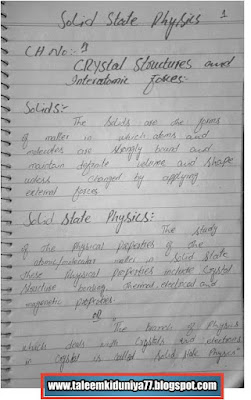 Solid State Physics 1
CH No:- 1
CRystal Structures and
Interatomic forces:-
Solids:-
The Solids are the forms
of matter in which atoms and
molecules are strongly bound and
maintain definite volume and shape
unless changed by applying
external forces
Solid State Physics:
The study
of the Physical Properties of the
atomic/molecular matter in Solid State
these Physical Properties include Crystal
Structure bonding, thermal, electrical and
magnetic properties.
or
"The branch of Physics
which deals with Crystals and electrons
in Crystal is called Solid State Physics"
www.taleemkiduniya77.blogspot.com